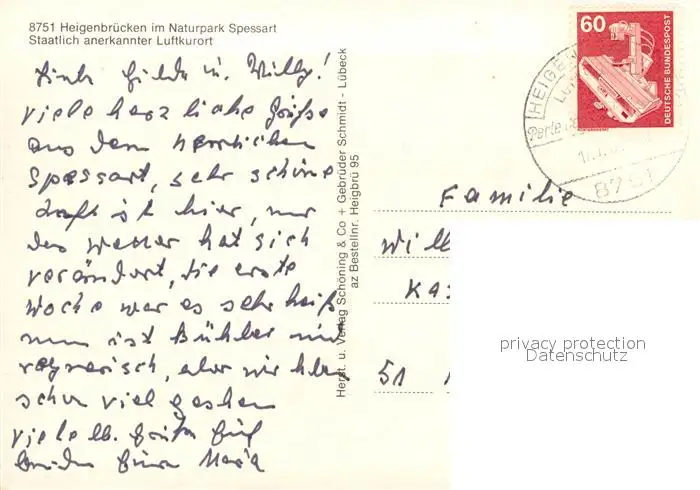 8751 Heigenbrücken im Naturpark Spessart
Staatlich anerkannter Luftkurort
Hilde u. Willy!
viele herzliche Grüße
aus dem herrlichen
Spessart, sehr schöne
Luft ist hier, nur
das wetter hat sich
verändert, die erste
Woche war es sehr heiß
nun ist kühler und
regnerisch, aber wir haben
schon viel gesehen
viele lb. Grüße für
beide Eure Maria
Herst. u. Verlag Schöning & Co + Gebrüder Schmidt - Lübeck
az Bestellnr. Heigbrü 95
60
DEUTSCHE BUNDESPOST
RÖNTGENGERÄT
HEIGE
Perle de
8751
Familie
Will
Ka
51
privacy protection
Datenschutz